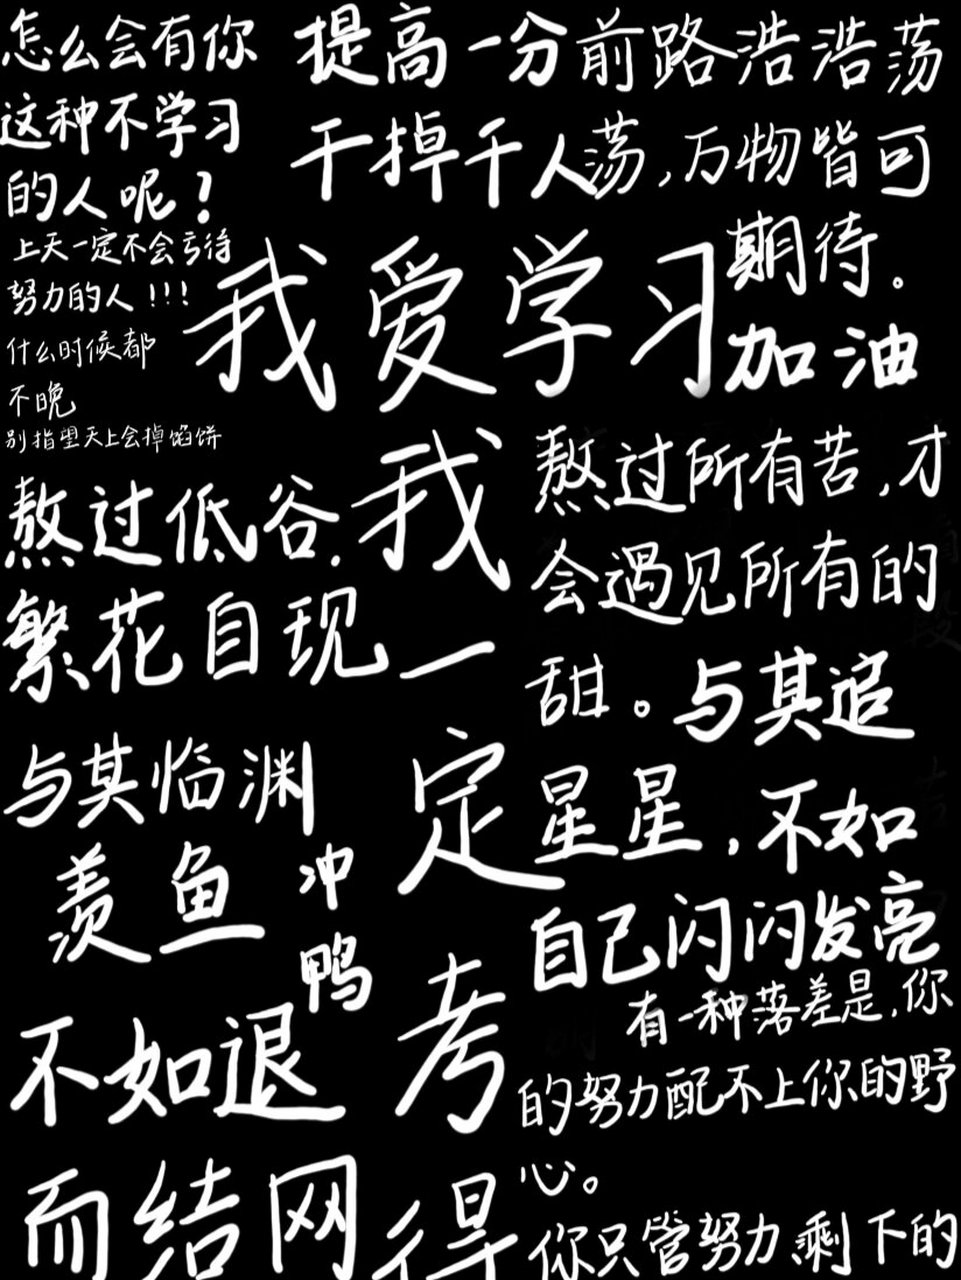 怎么会有你
这种不学习
的人呢？
上天一定不会亏待
努力的人！！！
什么时候都
不晚
别指望天上会掉馅饼
提高一分
干掉千人
前路浩浩荡
荡，万物皆可
期待。
我爱学习
加油
熬过低谷，
繁花自现
我
一
定
考
得
熬过所有苦，才
会遇见所有的
甜。
与其追
星星，不如
自己闪闪发亮
与其临渊
羡鱼
不如退
而结网
冲
鸭
有一种落差是，你
的努力配不上你的野
心。
你只管努力，剩下的